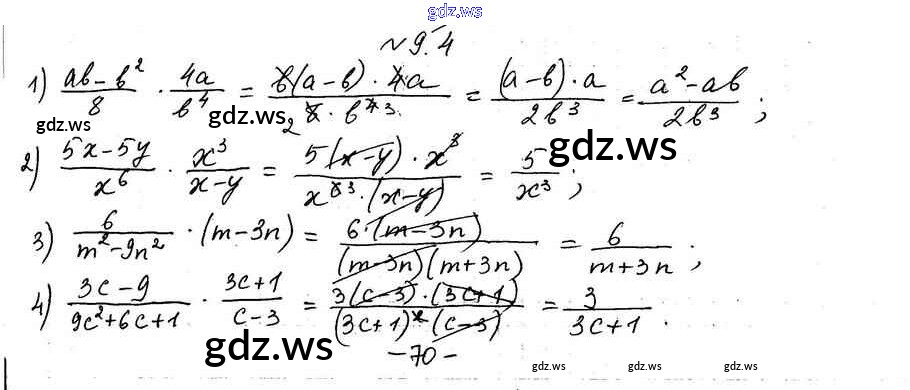 gdz.ws
№ 9.4
1) (ab-b²)/8 · 4a/b⁴ = (b(a-b)·4a)/(8·b⁴) 2 3 = ((a-b)·a)/(2b³) = (a²-ab)/(2b³);
gdz.ws gdz.ws gdz.ws
2) (5x-5y)/x⁶ · x³/(x-y) = (5(x-y)·x³)/(x⁶ ³·(x-y)) = 5/x³;
3) 6/(m²-9n²) · (m-3n) = (6·(m-3n))/((m-3n)(m+3n)) = 6/(m+3n);
4) (3c-9)/(9c²+6c+1) · (3c+1)/(c-3) = (3(c-3)·(3c+1))/((3c+1)²·(c-3)) = 3/(3c+1).
gdz.ws
-70-
gdz.ws gdz.ws gdz.ws